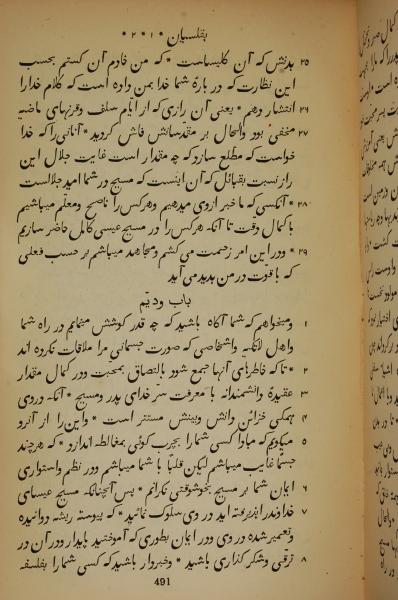 بقلسیان * ۱ * ۲ *
۲۵ بدنش که آن کلیساست * که من خادم آن گشتم بحسب
این نظارت که در بارهٔ شما خدا بمن داده است که کلام خدا را
۲۶ انتشار دهم * یعنی آن رازی که از ایام سلف وقرنهای ماضیه
۲۷ مخفی بود والحال بر مقدسانش فاش گردید * آنانی را که خدا
خواست که مطلع سازد که چه مقدار است غایت جلال این
راز نسبت بقبائل که آن اینست که مسیح در شما امید جلالست
۲۸ * آنکسی که ما خبر ازوی میدهیم وهرکس را ناصح ومعلم میباشیم
با کمال وقت تا آنکه هرکس را در مسیح عیسی کامل حاضر سازیم
۲۹ * ودر این امر زحمت می کشم ومجاهد میباشم بر حسب فعلی
که با قوت در من پدید می آید
باب ودیّم
۱ ومیخواهم که شما آگاه باشید که چه قدر کوشش میمایم در راه شما
واهل لائکیه واشخاصی که صورت جسمانی مرا ملاقات نکرده اند
۲ * تا که خاطرهای آنها جمع شود بالتصاق بمحبت ودر کمال مقدار
۳ عقیدهٔ دانشمندانه با معرفت سر خدای پدر ومسیح * آنکه در وی
۴ همکی خزائن دانش وبینش مستتر است * واین را از آنرو
۵ میگویم که مبادا کسی شما را بچرب گوئی بمغالطه اندازد * که هرچند
جسما غایب میباشم لیکن قلبًا با شما میباشم ودر نظم واستواری
۶ ایمان شما بر مسیح بخوشوقتی نگرانم * پس آنچنانکه مسیح عیسای
۷ خداوند را پذیرفته اید در وی سلوک نمائید * که پیوسته ریشه دوانیده
وتعمیر شده در وی ودر ایمان بطوری که آموختید پایدار ودر آن در
۸ ترقی وشکر گذاری باشید * وخبردار باشید که کسی شما را بفلسفه
491